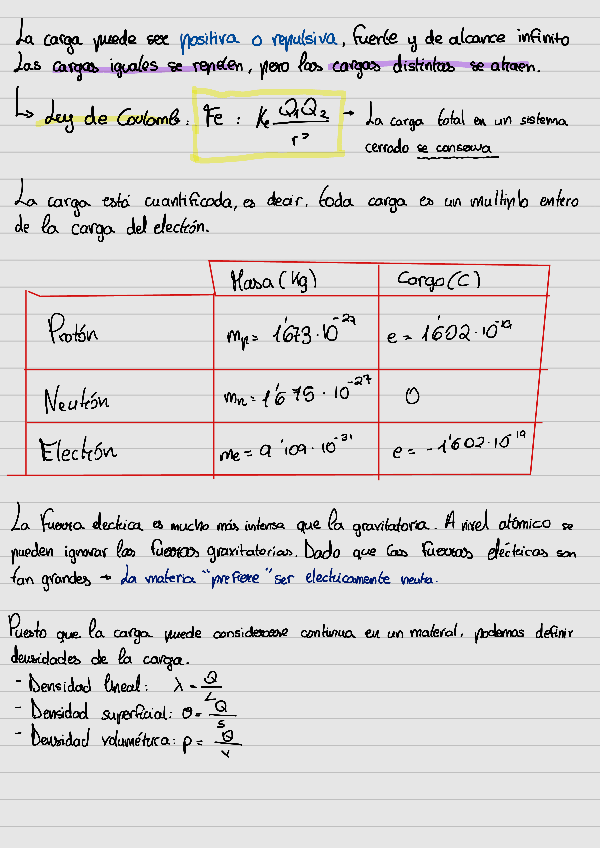 La carga puede ser positiva o repulsiva, fuerte y de alcance infinito
Las cargas iguales se repelen, pero las cargas distintas se atraen.
↳ Ley de Coulomb: Fe : Ke Q1Q2 / r² → La carga total en un sistema
cerrado se conserva
La carga está cuantificada, es decir, toda carga es un multiplo entero
de la carga del electrón.
Masa (Kg) Carga (C)
Protón mp = 1'673·10⁻²⁷ e = 1'602·10⁻¹⁹
Neutrón mn = 1'675·10⁻²⁷ 0
Electrón me = 9'109·10⁻³¹ e = -1'602·10¹⁹
La fuerza electrica es mucho más intensa que la gravitatoria. A nivel atómico se
pueden ignorar las fuerzas gravitatorias. Dado que las fuerzas eléctricas son
tan grandes → La materia "prefiere" ser electricamente neutra.
Puesto que la carga puede considerarse continua en un material, podemos definir
densidades de la carga.
- Densidad lineal: λ = Q/L
- Densidad superficial: σ = Q/S
- Densidad volumétrica: ρ = Q/V